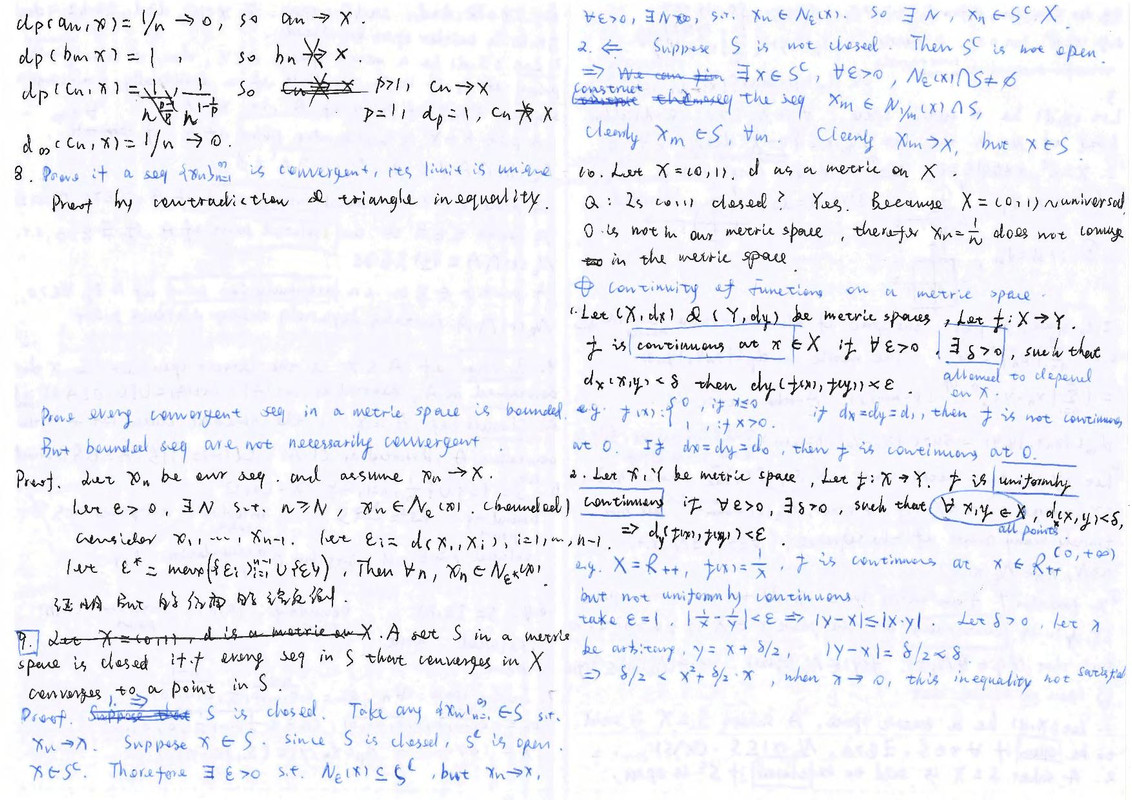 dp(an, x) = 1/n → 0, so an → x
dp(bn, x) = 1, so bn ↛ x
dp(cn, x) = 1/n^{1-1/p} so p>1, cn → x
p=1, dp=1, cn ↛ x
d∞(cn, x) = 1/n → 0.
8. Prove if a seq {xn}_{n=1}^∞ is convergent, its limit is unique
Proof by contradiction & triangle inequality.
Prove every convergent seq in a metric space is bounded.
But bounded seq are not necessarily convergent
Proof. Let xn be our seq. and assume xn → x.
Let ε>0, ∃N s.t. n≥N, xn ∈ Nε(x). (bounded)
Consider x1, ..., xn-1. Let εi = d(x, xi), i=1, ..., n-1.
Let ε* = max({εi}_{i=1}^{n-1} ∪ {ε}), Then ∀n, xn ∈ Nε*(x).
证明 But 的
9. Let X = (0,1), d is a metric on X. A set S in a metric
space is closed iff every seq in S that converges in X
converges to a point in S.
Proof. 1. ⇒ Suppose that S is closed. Take any {xn}_{n=1}^∞ ∈ S s.t.
xn → x. Suppose x ∈ S, since S is closed, S^c is open.
x ∈ S^c. Therefore ∃ ε>0 s.t. Nε(x) ⊆ S^c, but xn → x,
∀ε>0, ∃N s.t. xn ∈ Nε(x). So ∃N, xn ∈ S^c X
2. ⇐ Suppose S is not closed. Then S^c is not open.
⇒ We can fin ∃x ∈ S^c, ∀ε>0, Nε(x) ∩ S ≠ ∅
construct the seq xm ∈ N1/m(x) ∩ S,
Clearly xm ∈ S, ∀m. Clearly xm → x, but x ∈ S
10. Let X = (0,1), d as a metric on X
Q: Is (0,1) closed? Yes. Because X = (0,1) ~ universal.
0 is not in our metric space, therefor xn = 1/n does not converge
in the metric space.
Continuity of functions on a metric space.
1. Let (X, dx) & (Y, dy) be metric spaces, Let f: X → Y.
f is continuous at x ∈ X if ∀ε>0 ∃δ>0, such that
allowed to depend
on x
dx(x,y) < δ then dy(f(x), f(y)) < ε.
eg. f(x): { 0, if x≤0
1, if x>0. if dx=dy=d1, then f is not continuous
at 0. If dx=dy=d0, then f is continuous at 0.
2. Let X, Y be metric space, Let f: X → Y. f is uniformly
continuous if ∀ε>0, ∃δ>0, such that ∀ x,y ∈ X, dx(x,y)<δ,
all points
⇒ dy(f(x), f(y)) < ε.
eg. X = R++, f(x) = 1/x, f is continuous at x ∈ R++ (0, +∞)
but not uniformly continuous
take ε=1, |1/x - 1/y| < ε ⇒ |y-x| ≤ |x·y|. Let δ>0, let x
be arbitrary, y = x + δ/2, |y-x| = δ/2 < δ
⇒ δ/2 < x² + δ/2·x, when x → 0, this inequality not satisfied